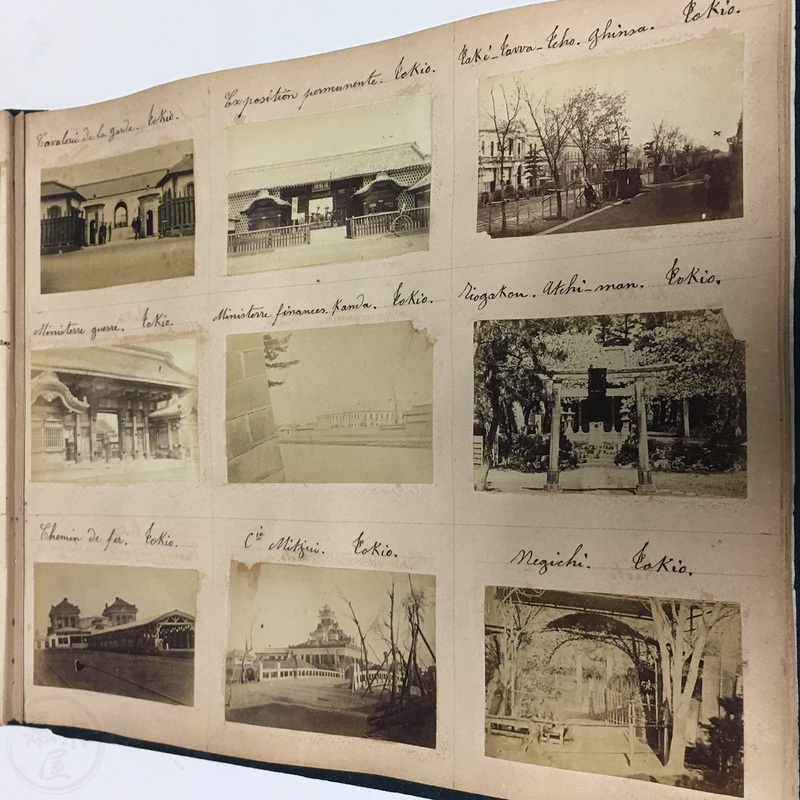 Cavalerie de la garde. Tokio.
Exposition permanente. Tokio.
Také-Kawa-Tcho. Ghinsa. Tokio.
Ministerre guerre. Tokio.
Ministerre finances. Kanda. Tokio.
Atchi-man. Tokio.
Chemin de fer. Tokio.
Cie Mitzui. Tokio.
Negichi. Tokio.
屋